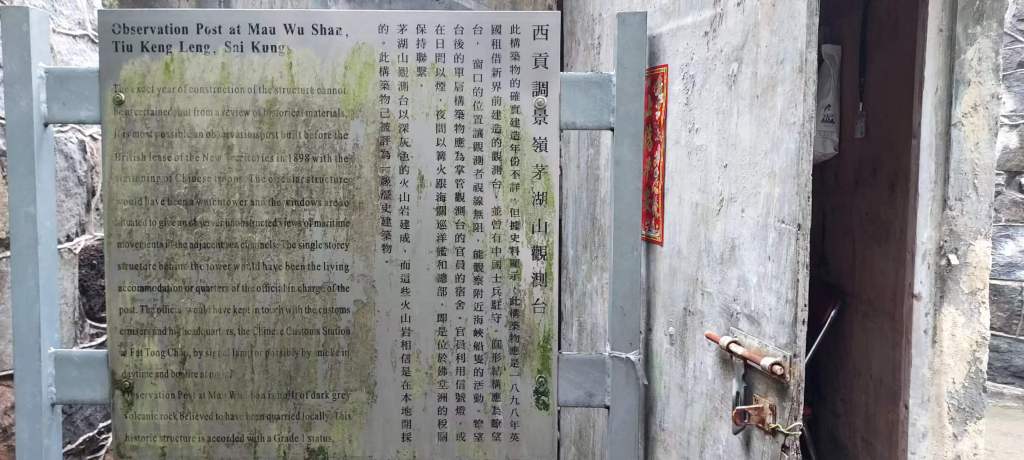 Observation Post at Mau Wu Shan,
Tiu Keng Leng, Sai Kung
The exact year of construction of the structure cannot
be ascertained but from a review of historical materials,
it is most possible an observation post built before the
British lease of the New Territories in 1898 with the
stationing of Chinese troops. The circular structure
would have been a watch tower and the windows are so
situated to give an observer unobstructed views of maritime
movements in the adjacent sea channels. The single storey
structure behind the tower would have been the living
accommodation or quarters of the official in charge of the
post. The official would have kept in touch with the customs
cruisers and his headquarters, the Chinese Customs Station
at Fat Tong Chau, by signal lamp or possibly by smoke in
daytime and bonfire at night.
Observation Post at Mau Wu Shan is built of dark grey
volcanic rock believed to have been quarried locally. This
historic structure is accorded with a Grade I status.
西貢調景嶺茅湖山觀測台
此構築物的確實建造年份不詳,但據史料顯示,此構築物應是一八九八年英
國租借新界前建造的觀測台,並曾有中國士兵駐守。圓形結構應為瞭望
台,窗口的位置讓觀測者視線無阻,能觀察附近海峽船隻的活動。瞭望
台後的單層構築物應為掌管觀測台的官員的宿舍。官員利用信號燈,或
在日間以煙,夜間以篝火跟海關巡洋艦和總部,即是位於佛堂洲的稅關
保持聯繫。
茅湖山觀測台以深灰色的火山岩建成,而這些火山岩相信是在本地開採
的。此構築物已被評為一級歷史建築物。